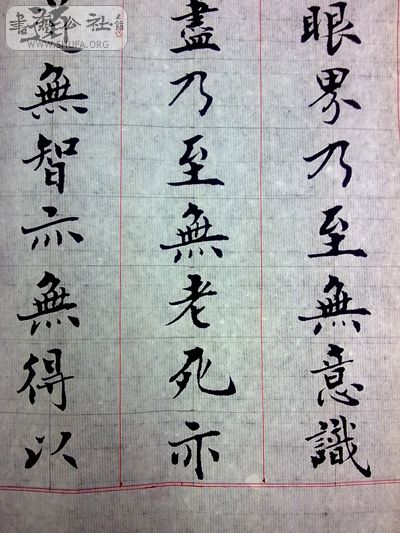 眼界乃至無意識
盡乃至無老死亦
道無智亦無得以
書法公社
WWW.SHUFA.ORG